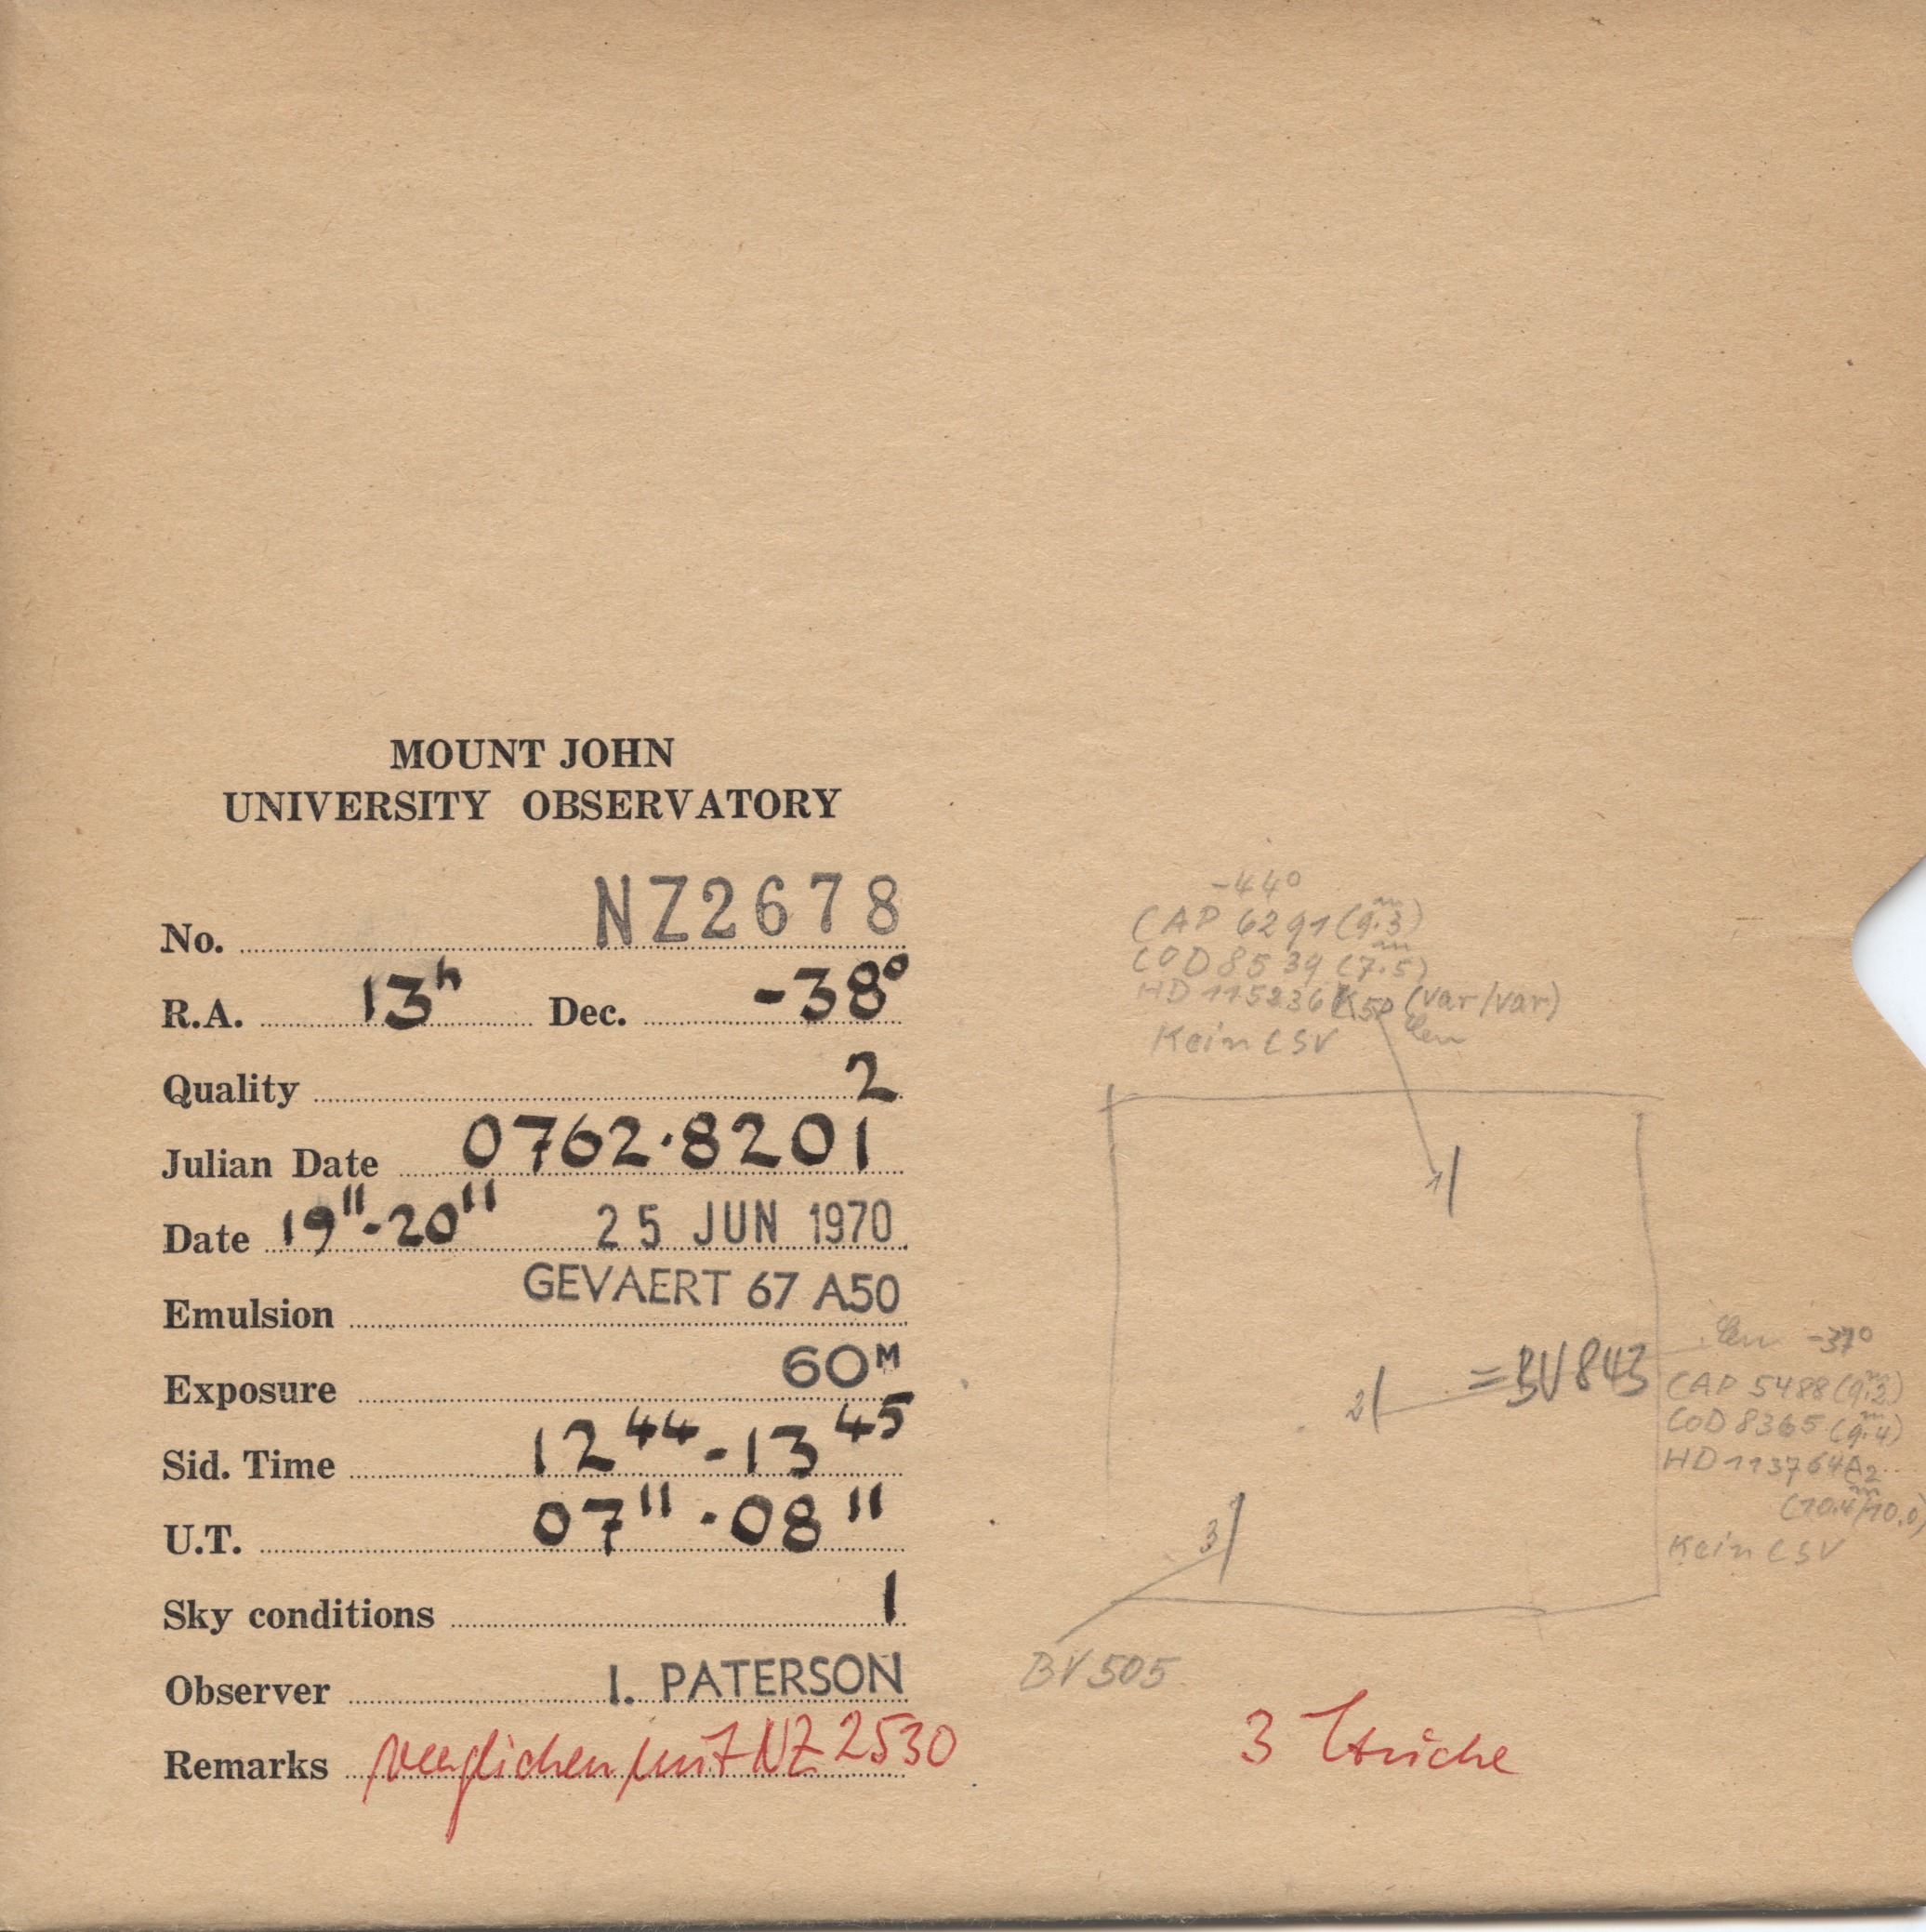 MOUNT JOHN
UNIVERSITY OBSERVATORY
No. NZ2678
R.A. 13h Dec. -38°
Quality 2
Julian Date 0762.8201
Date 19"-20" 25 JUN 1970
Emulsion GEVAERT 67 A50
Exposure 60M
Sid. Time 12 44 - 13 45
U.T. 07" - 08"
Sky conditions 1
Observer I. PATERSON
Remarks verglichen mit NZ 2530
-44°
CAP 6291 (9.3m)
COD 8539 (7.5m)
HD 115236 K5p (var/var)
Kein CSV
1
2
=BV 843
-37°
CAP 5488 (9.2m)
COD 8365 (9.4m)
HD 113764 A2
(10.4/10.0m)
Kein CSV
3
BV 505
3 Striche